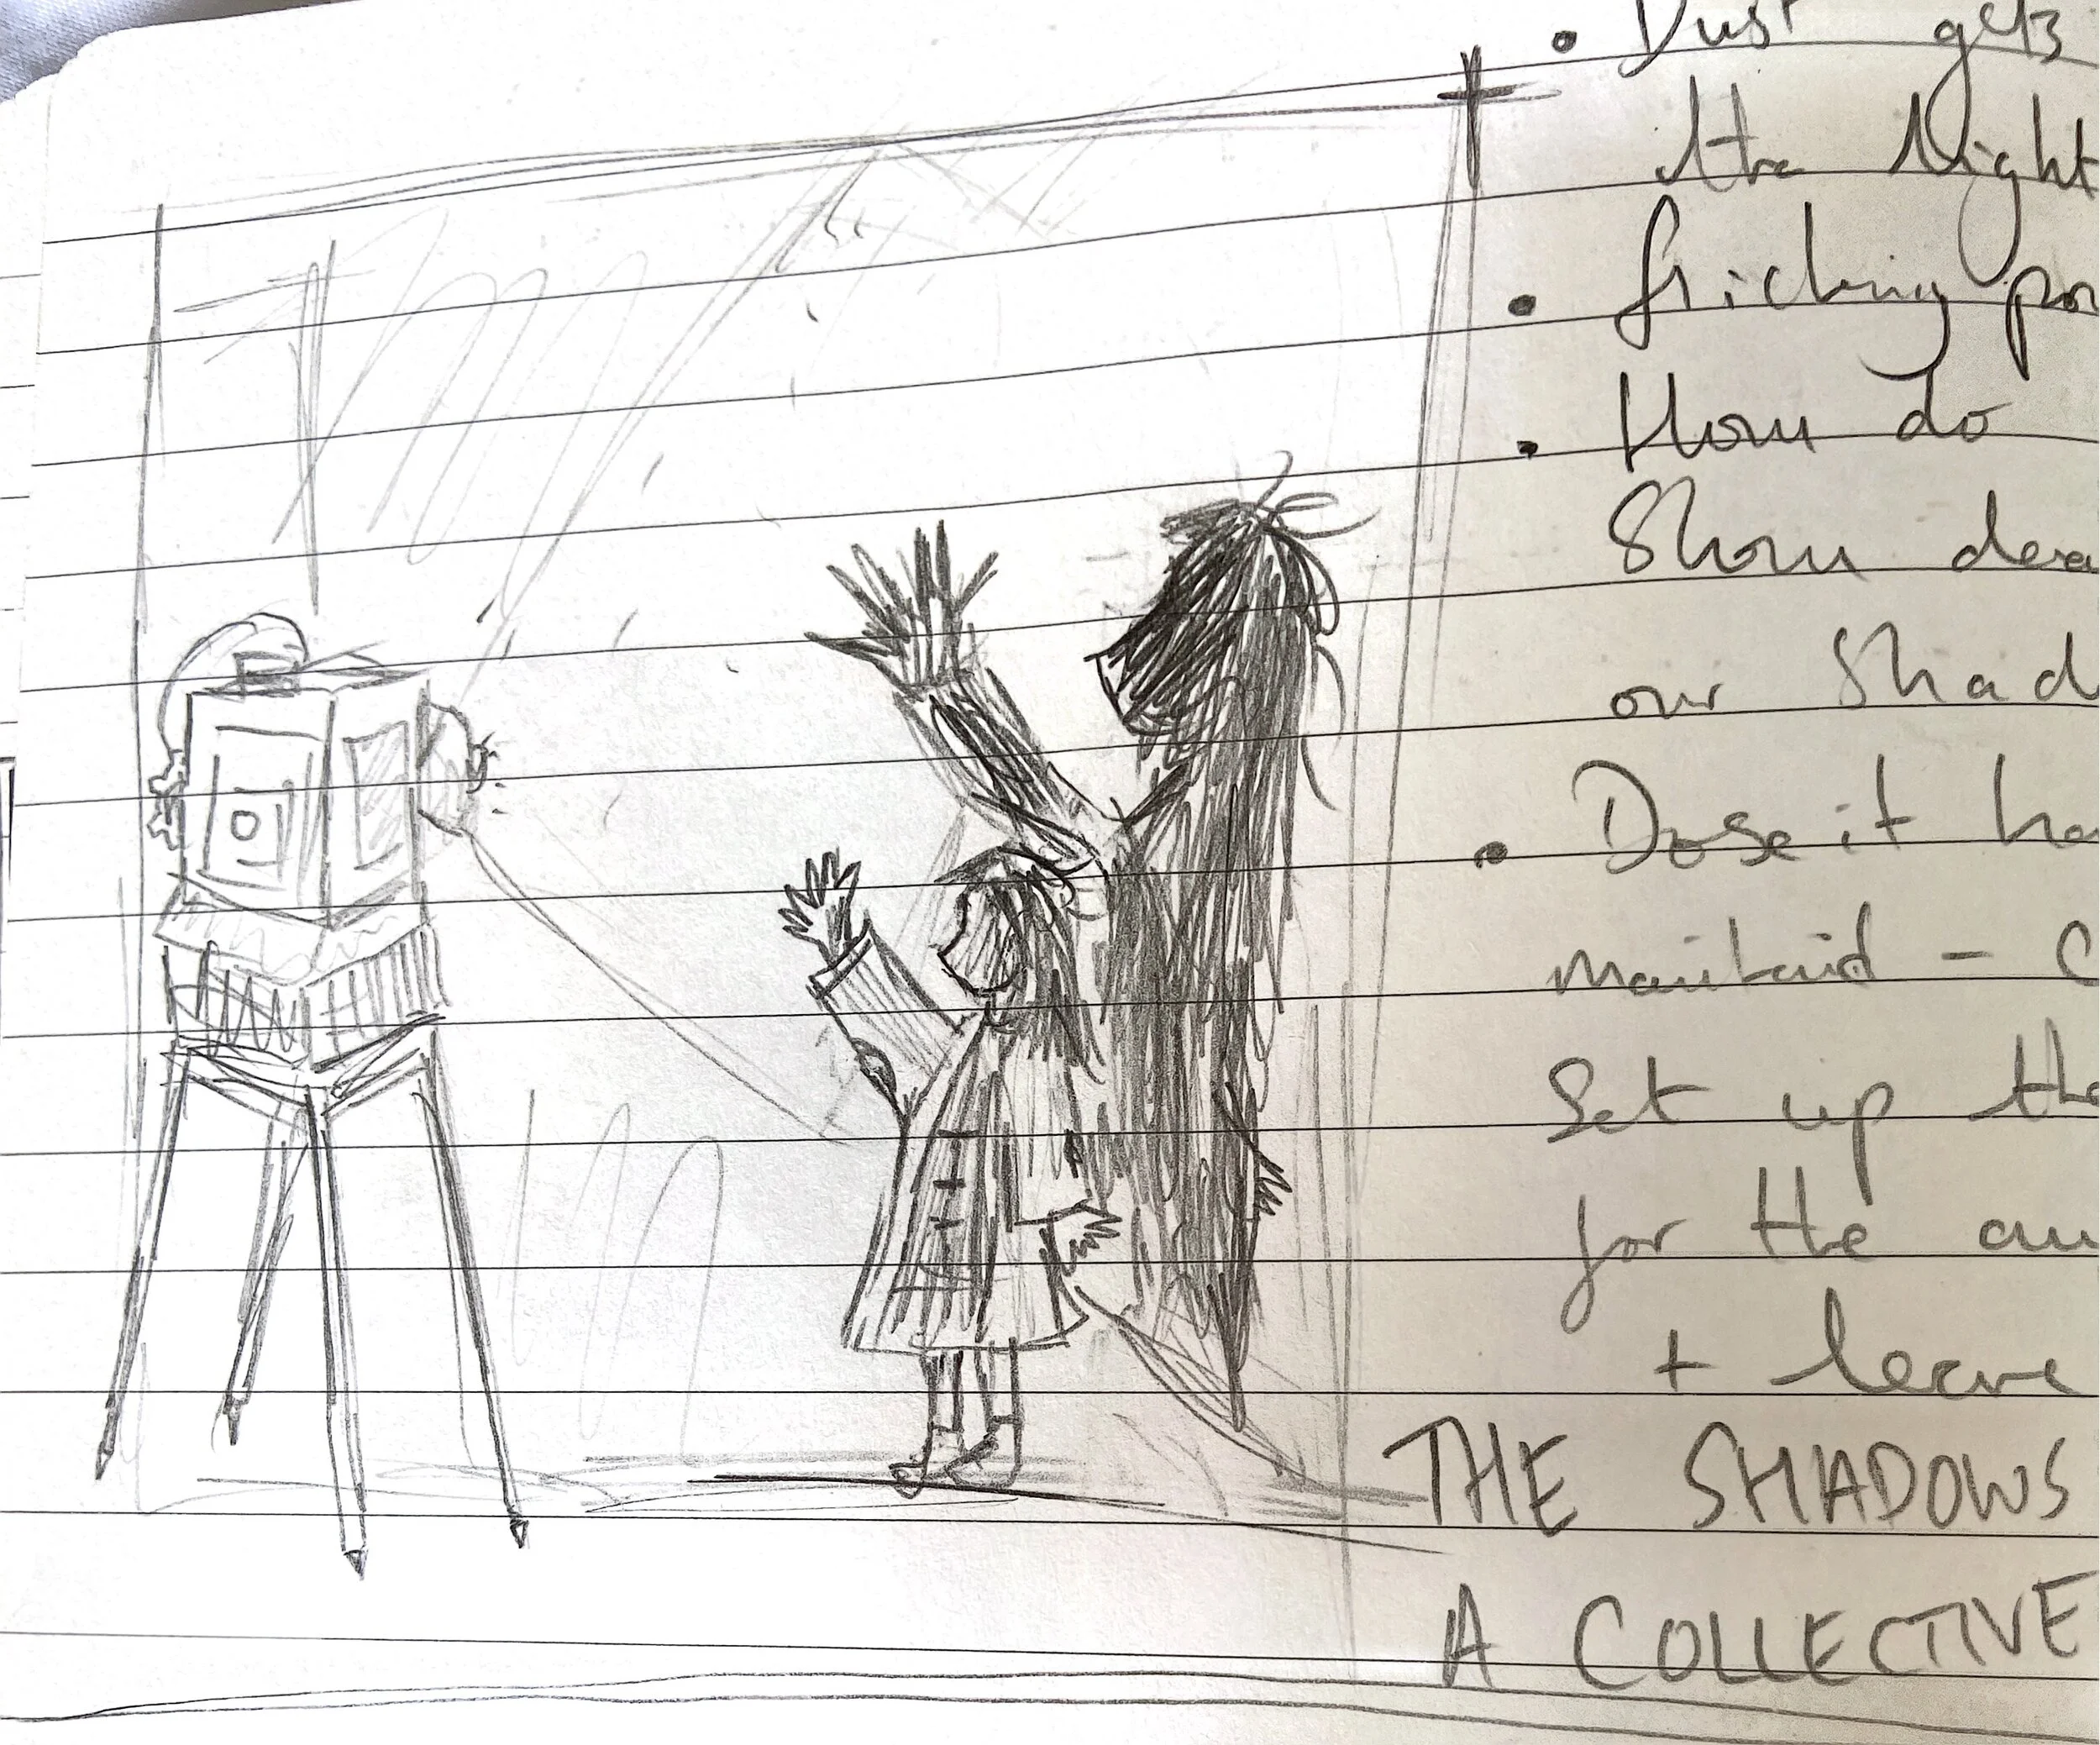 • Dust gets
the light
• flicking por
• How do
Show dea
our Shad
• Dose it ha
- C
Set up the
for the au
+ leave
THE SHADOWS
A COLLECTIVE